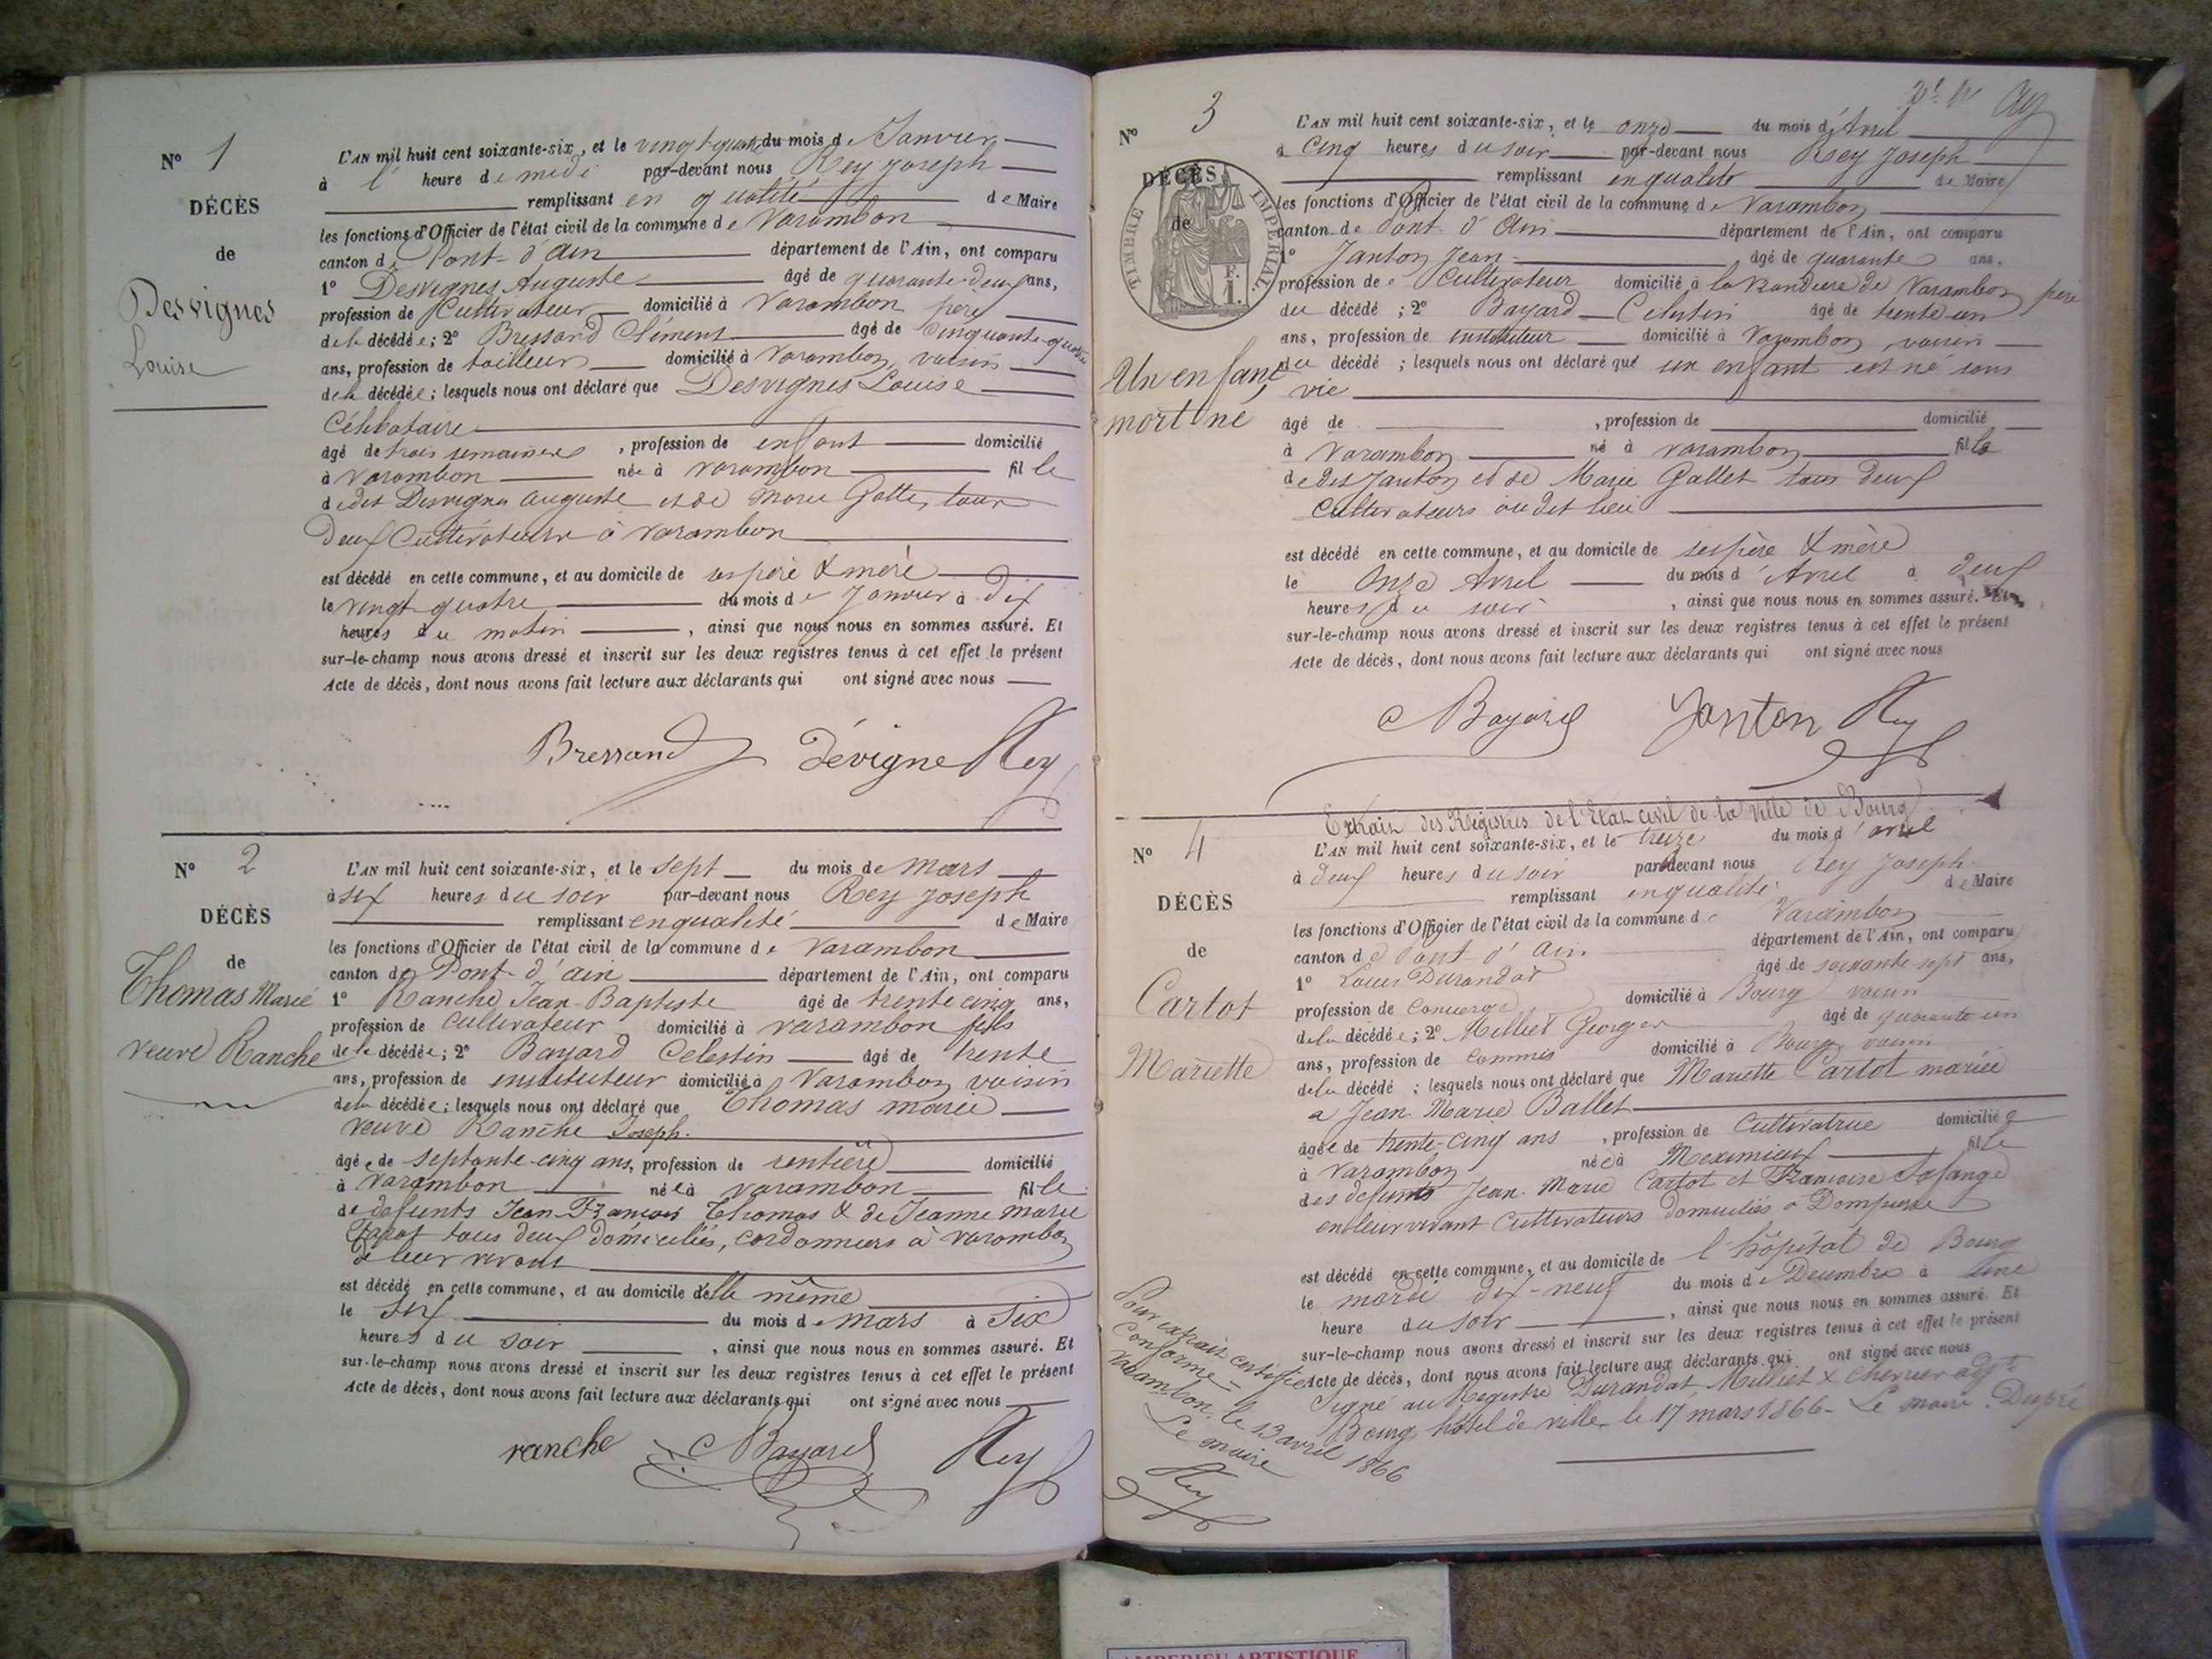 N° 1
DÉCÈS
de
Desvignes
Louise
L'AN mil huit cent soixante-six, et le vingt-quatre du mois de Janvier
à l' heure de midi par-devant nous Rey Joseph
remplissant en qualité de Maire
les fonctions d'Officier de l'état civil de la commune de Varambon
canton de Pont-d'ain département de l'Ain, ont comparu
1° Desvignes Auguste âgé de quarante-deux ans,
profession de Cultivateur domicilié à Varambon père
de la décédée; 2° Bressand Clément âgé de cinquante-quatre
ans, profession de tailleur domicilié à Varambon, voisin
de la décédée; lesquels nous ont déclaré que Desvignes Louise
Célibataire
âgé de trois semaines, profession de enfant domicilié
à Varambon née à Varambon fille
de dit Desvignes Auguste et de Marie Gotte, tous
deux Cultivateurs à Varambon
est décédé en cette commune, et au domicile de ses père & mère
le vingt-quatre du mois de Janvier à dix
heures du matin, ainsi que nous nous en sommes assuré. Et
sur-le-champ nous avons dressé et inscrit sur les deux registres tenus à cet effet le présent
Acte de décès, dont nous avons fait lecture aux déclarants qui ont signé avec nous
Bressand Dévigne Rey
N° 2
DÉCÈS
de
Thomas Marie
veuve Ranche
L'AN mil huit cent soixante-six, et le sept du mois de mars
à six heures du soir par-devant nous Rey Joseph
remplissant en qualité de Maire
les fonctions d'Officier de l'état civil de la commune de Varambon
canton de Pont-d'ain département de l'Ain, ont comparu
1° Ranche Jean-Baptiste âgé de trente cinq ans,
profession de Cultivateur domicilié à Varambon fils
de la décédée; 2° Bayard Celestin âgé de trente
ans, profession de instituteur domicilié à Varambon voisin
de la décédée; lesquels nous ont déclaré que Thomas marie
veuve Ranche Joseph.
âgée de septante-cinq ans, profession de rentière domicilié
à Varambon née à Varambon fille
de défunts Jean-François Thomas & de Jeanne marie
tous deux domiciliés, cordonniers à Varambon
de leur vivant
est décédé en cette commune, et au domicile d'elle même
le six du mois de mars à six
heures du soir, ainsi que nous nous en sommes assuré. Et
sur-le-champ nous avons dressé et inscrit sur les deux registres tenus à cet effet le présent
Acte de décès, dont nous avons fait lecture aux déclarants qui ont signé avec nous
ranche C Bayard Rey
N° 3
DÉCÈS
de
TIMBRE IMPÉRIAL
F. 1.
Un enfant
mort né
L'AN mil huit cent soixante-six, et le onze du mois d'Avril
à Cinq heures du soir par-devant nous Rey Joseph
remplissant en qualité de Maire
les fonctions d'Officier de l'état civil de la commune de Varambon
canton de Pont-d'Ain département de l'Ain, ont comparu
1° Janton Jean âgé de quarante ans.
profession de Cultivateur domicilié à la Rondière de Varambon père
du décédé; 2° Bayard Celestin âgé de trente un
ans, profession de instituteur domicilié à Varambon, voisin
du décédé; lesquels nous ont déclaré que un enfant est né sans
vie
âgé de , profession de domicilié
à Varambon né à Varambon fils
de dit Janton et de Marie Gallet tous deux
Cultivateurs au dit lieu
est décédé en cette commune, et au domicile de ses père & mère
le Onze Avril du mois d'Avril à deux
heures du soir, ainsi que nous nous en sommes assuré. Et
sur-le-champ nous avons dressé et inscrit sur les deux registres tenus à cet effet le présent
Acte de décès, dont nous avons fait lecture aux déclarants qui ont signé avec nous
C Bayard Janton Rey
Extrait des Registres de l'Etat civil de la ville de Bourg
N° 4
DÉCÈS
de
Cartot
Mariette
L'AN mil huit cent soixante-six, et le treize du mois d'avril
à deux heures du soir par-devant nous Rey Joseph
remplissant en qualité de Maire
les fonctions d'Officier de l'état civil de la commune de Varambon
canton de Pont d'Ain département de l'Ain, ont comparu
1° Louis Durandat âgé de soixante-sept ans,
profession de Concierge domicilié à Bourg voisin
de la décédée; 2° Milliet Georges âgé de quarante un
ans, profession de Commis domicilié à Bourg voisin
de la décédé; lesquels nous ont déclaré que Mariette Cartot mariée
a Jean-Marie Ballet
âgée de trente-cinq ans, profession de Cultivatrice domiciliée
à Varambon née à Meximieux fille
des défunts Jean-Marie Cartot et Françoise
en leur vivant Cultivateurs domiciliés à Dompierre
est décédé en cette commune, et au domicile de l'hôpital de Bourg
le mardi dix-neuf du mois de Décembre à une
heure du soir, ainsi que nous nous en sommes assuré. Et
sur-le-champ nous avons dressé et inscrit sur les deux registres tenus à cet effet le présent
Acte de décès, dont nous avons fait lecture aux déclarants qui ont signé avec nous
Signé au Registre Durandat, Milliet & Chevrier adjt
Bourg hôtel de ville, le 17 mars 1866 - Le maire Dupré
Pour extrait certifié
Conforme -
Varambon, le 13 avril 1866
Le maire
Rey
AMBERIEU ARTISTIQUE